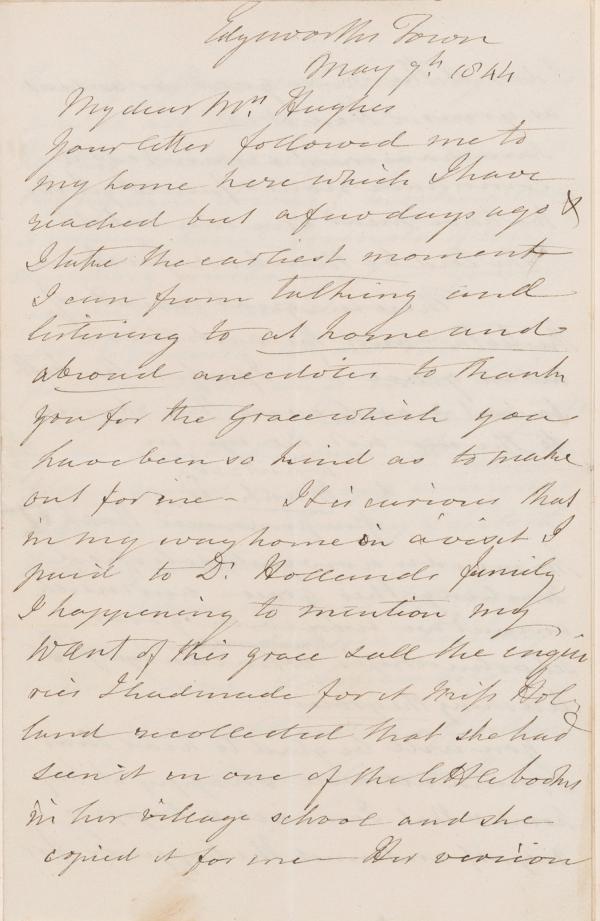 Edgeworths Town
May 9th. 1844
My dear Mrs. Hughes
Your letter followed me to
my home here which I have
reached but a few days ago &
I take the earliest moment
I can from talking and
listening to at home and
abroad anecdotes to thank
you for the Grace which you
have been so kind as to make
out for me - It is curious that
in my way home in a visit I
paid to Dr. Hollands family
I happening to mention my
want of this grace & all the enqui
ries I had made for it Miss Hol-
land recollected that she had
seen it in one of the little books
in her village school and she
copied it for me - Her version